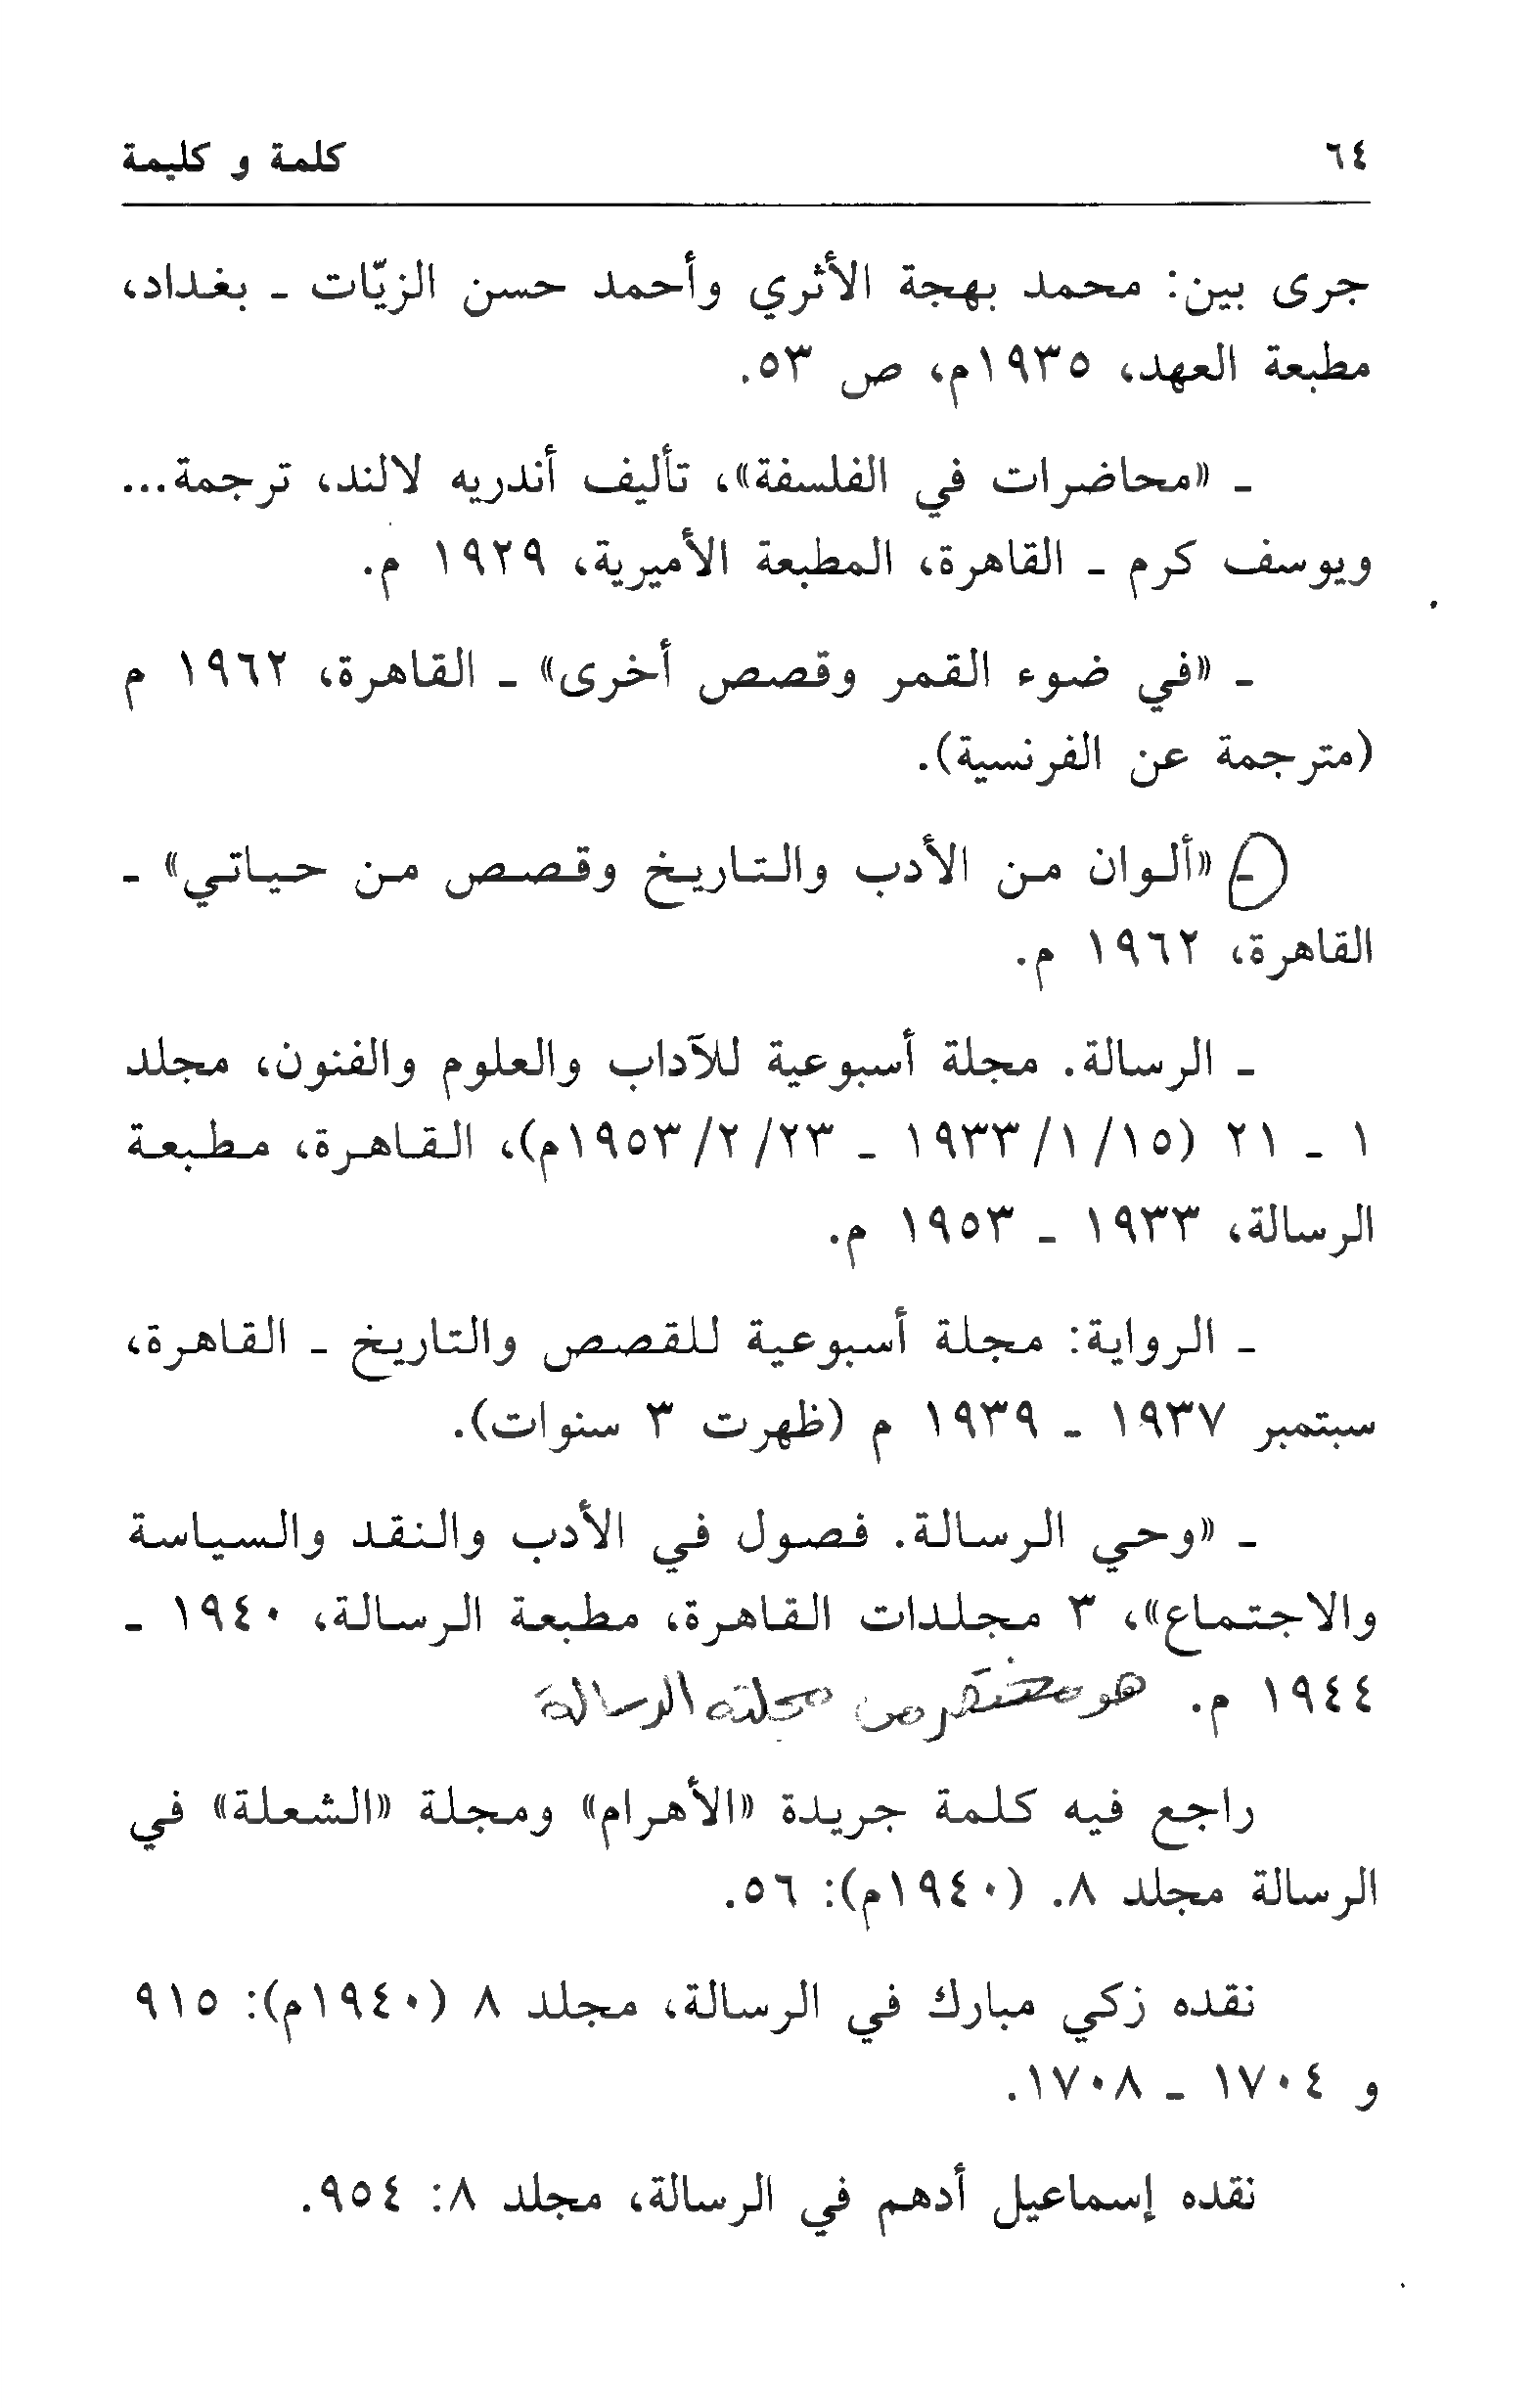 ٦٤
كلمة و كليمة
جرى بين: محمد بهجة الأثري وأحمد حسن الزيّات ـ بغداد،
مطبعة العهد، ١٩٣٥م، ص ٥٣.
ـ «محاضرات في الفلسفة»، تأليف أندريه لالند، ترجمة...
ويوسف كرم ـ القاهرة، المطبعة الأميرية، ١٩٢٩ م.
ـ «في ضوء القمر وقصص أخرى» ـ القاهرة، ١٩٦٢ م
(مترجمة عن الفرنسية).
ـ «ألوان من الأدب والتاريخ وقصص من حياتي» ـ
القاهرة، ١٩٦٢ م.
ـ الرسالة. مجلة أسبوعية للآداب والعلوم والفنون، مجلد
١ ـ ٢١ (١٥/ ١/ ١٩٣٣ ـ ٢٣/ ٢/ ١٩٥٣م)، القاهرة، مطبعة
الرسالة، ١٩٣٣ ـ ١٩٥٣ م.
ـ الرواية: مجلة أسبوعية للقصص والتاريخ ـ القاهرة،
سبتمبر ١٩٣٧ ـ ١٩٣٩ م (ظهرت ٣ سنوات).
ـ «وحي الرسالة. فصول في الأدب والنقد والسياسة
والاجتماع»، ٣ مجلدات القاهرة، مطبعة الرسالة، ١٩٤٠ ـ
١٩٤٤ م. هو مختصر من مجلته الرسالة
راجع فيه كلمة جريدة «الأهرام» ومجلة «الشعلة» في
الرسالة مجلد ٨. (١٩٤٠م): ٥٦.
نقده زكي مبارك في الرسالة، مجلد ٨ (١٩٤٠م): ٩١٥
و ١٧٠٤ ـ ١٧٠٨.
نقده إسماعيل أدهم في الرسالة، مجلد ٨: ٩٥٤.